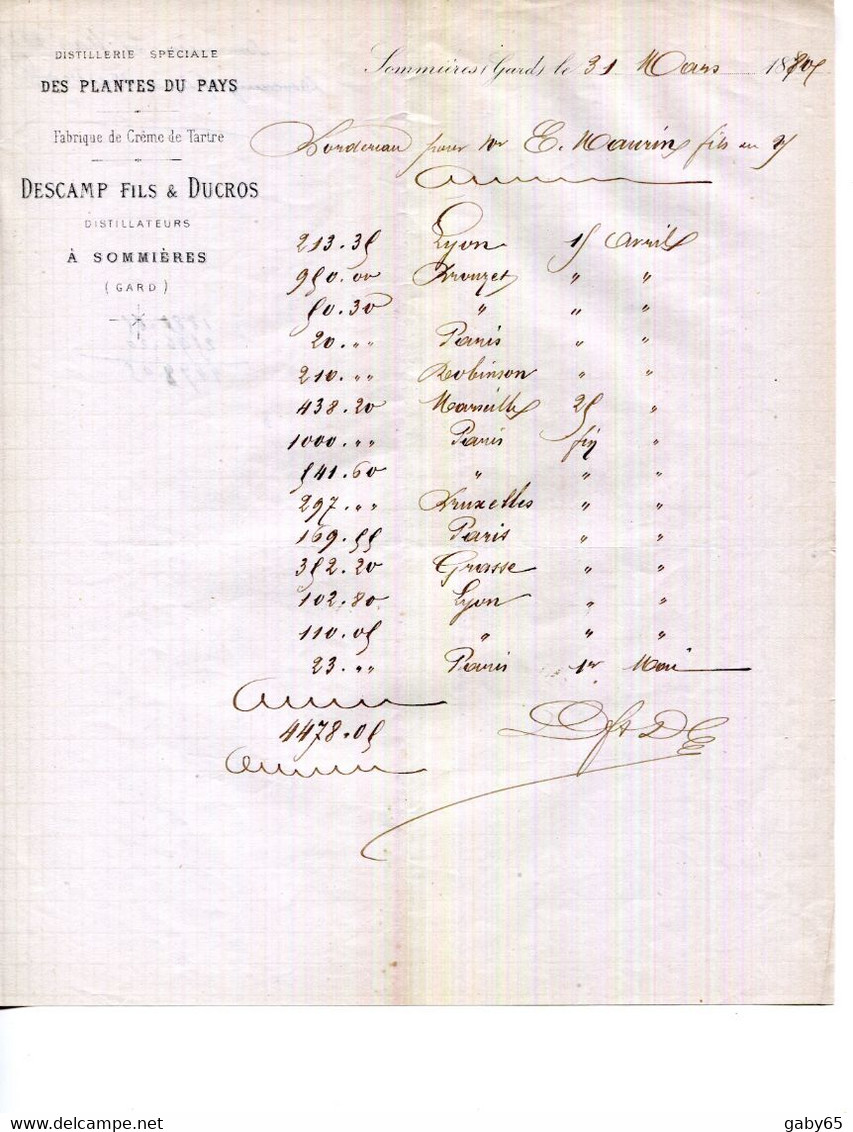 DISTILLERIE SPÉCIALE
DES PLANTES DU PAYS
Fabrique de Crème de Tartre
DESCAMP FILS & DUCROS
DISTILLATEURS
À SOMMIÈRES
(GARD)
Sommières (Gard), le 31 Mars 18
Bordereau pour Mr E. Maurin fils
213.35 Lyon 15 Avril
950.00 Drouzet " "
50.30 " " "
20. " " Paris " "
210. " " Robinson " "
438.20 Marseille 25 "
1000. " " Paris fin "
541.60 " " "
297. " " Bruxelles " "
169.55 Paris " "
352.20 Grasse " "
102.80 Lyon " "
110.05 " " "
23. " " Paris 1er Mai
4478.05
gaby65